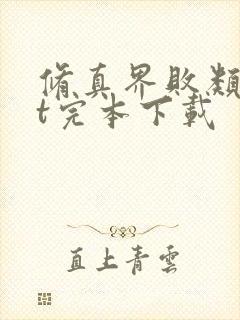 修真界败类
t完本下载
直上青云